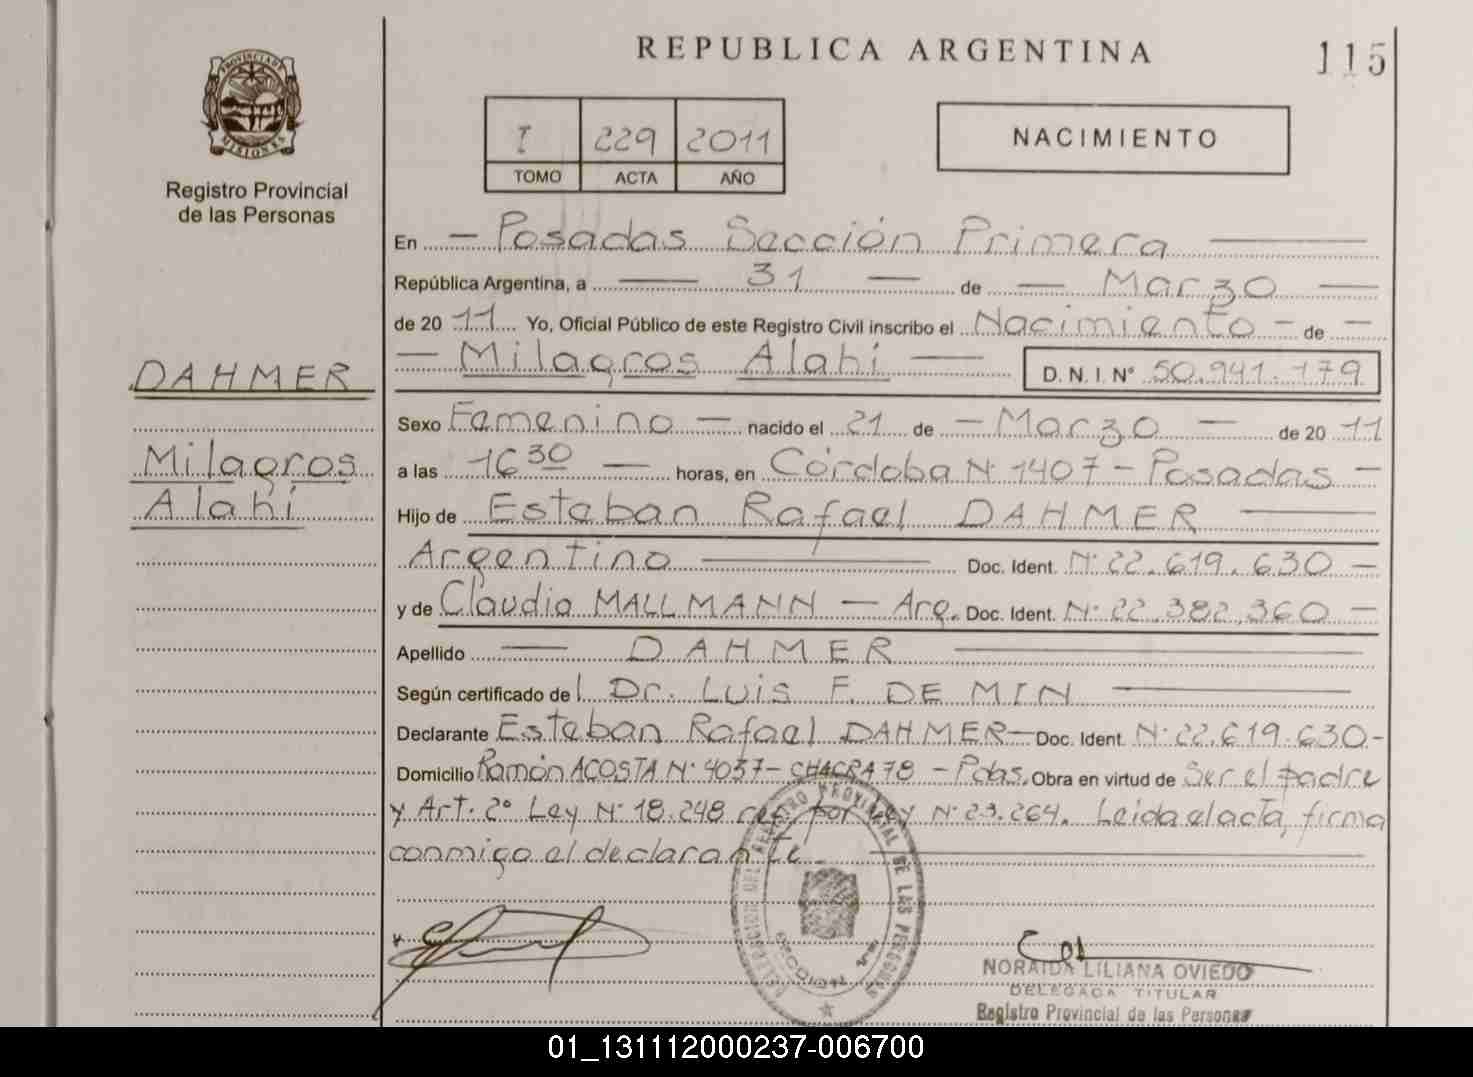 REPUBLICA ARGENTINA
115
PROVINCIA DE MISIONES
Registro Provincial
de las Personas
I 229 2011
TOMO ACTA AÑO
NACIMIENTO
En — Posadas Sección Primera —
República Argentina, a — 31 — de — Marzo —
de 2011 Yo, Oficial Público de este Registro Civil inscribo el Nacimiento — de —
— Milagros Alahí — D. N. I. N° 50.941.179
DAHMER
Milagros
Alahí
Sexo Femenino — nacido el 21 de — Marzo — de 2011
a las 16 30 — horas, en Córdoba N° 1407 - Posadas —
Hijo de Esteban Rafael DAHMER —
Argentino — Doc. Ident. N° 22.619.630 —
y de Claudia MALLMANN — Arg. Doc. Ident. N° 22.382.360 —
Apellido — DAHMER —
Según certificado del Dr. LUIS F. DE MIN —
Declarante Esteban Rafael DAHMER — Doc. Ident. N° 22.619.630 -
Domicilio Ramón ACOSTA N° 4037 - CHACRA 78 - Pdas. Obra en virtud de Ser el padre
y Art. 2° Ley N° 18.248 ref. por Ley N° 23.264. Leida el acta, firma
conmigo el declarante. —
DELEGACION DEL REGISTRO PROVINCIAL DE LAS PERSONAS
SECCION 1a
NORAIDA LILIANA OVIEDO
DELEGADA TITULAR
Registro Provincial de las Personas
01_131112000237-006700